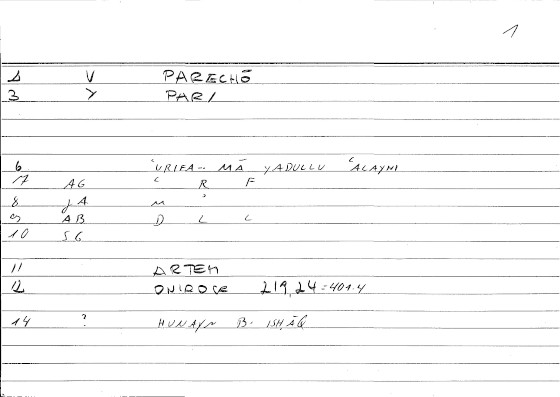 1
1 V PARECHŌ
3 Y PAR/
6 ʿURIFA-- MĀ YADULLU ʿALAYHI
7 AG ʿ R F
8 JA M ʾ
9 AB D L L
10 SG
11 ARTEM
12 ONIROCR 219,24 = 401.4
14 ? ḤUNAYN B. ISḤĀQ